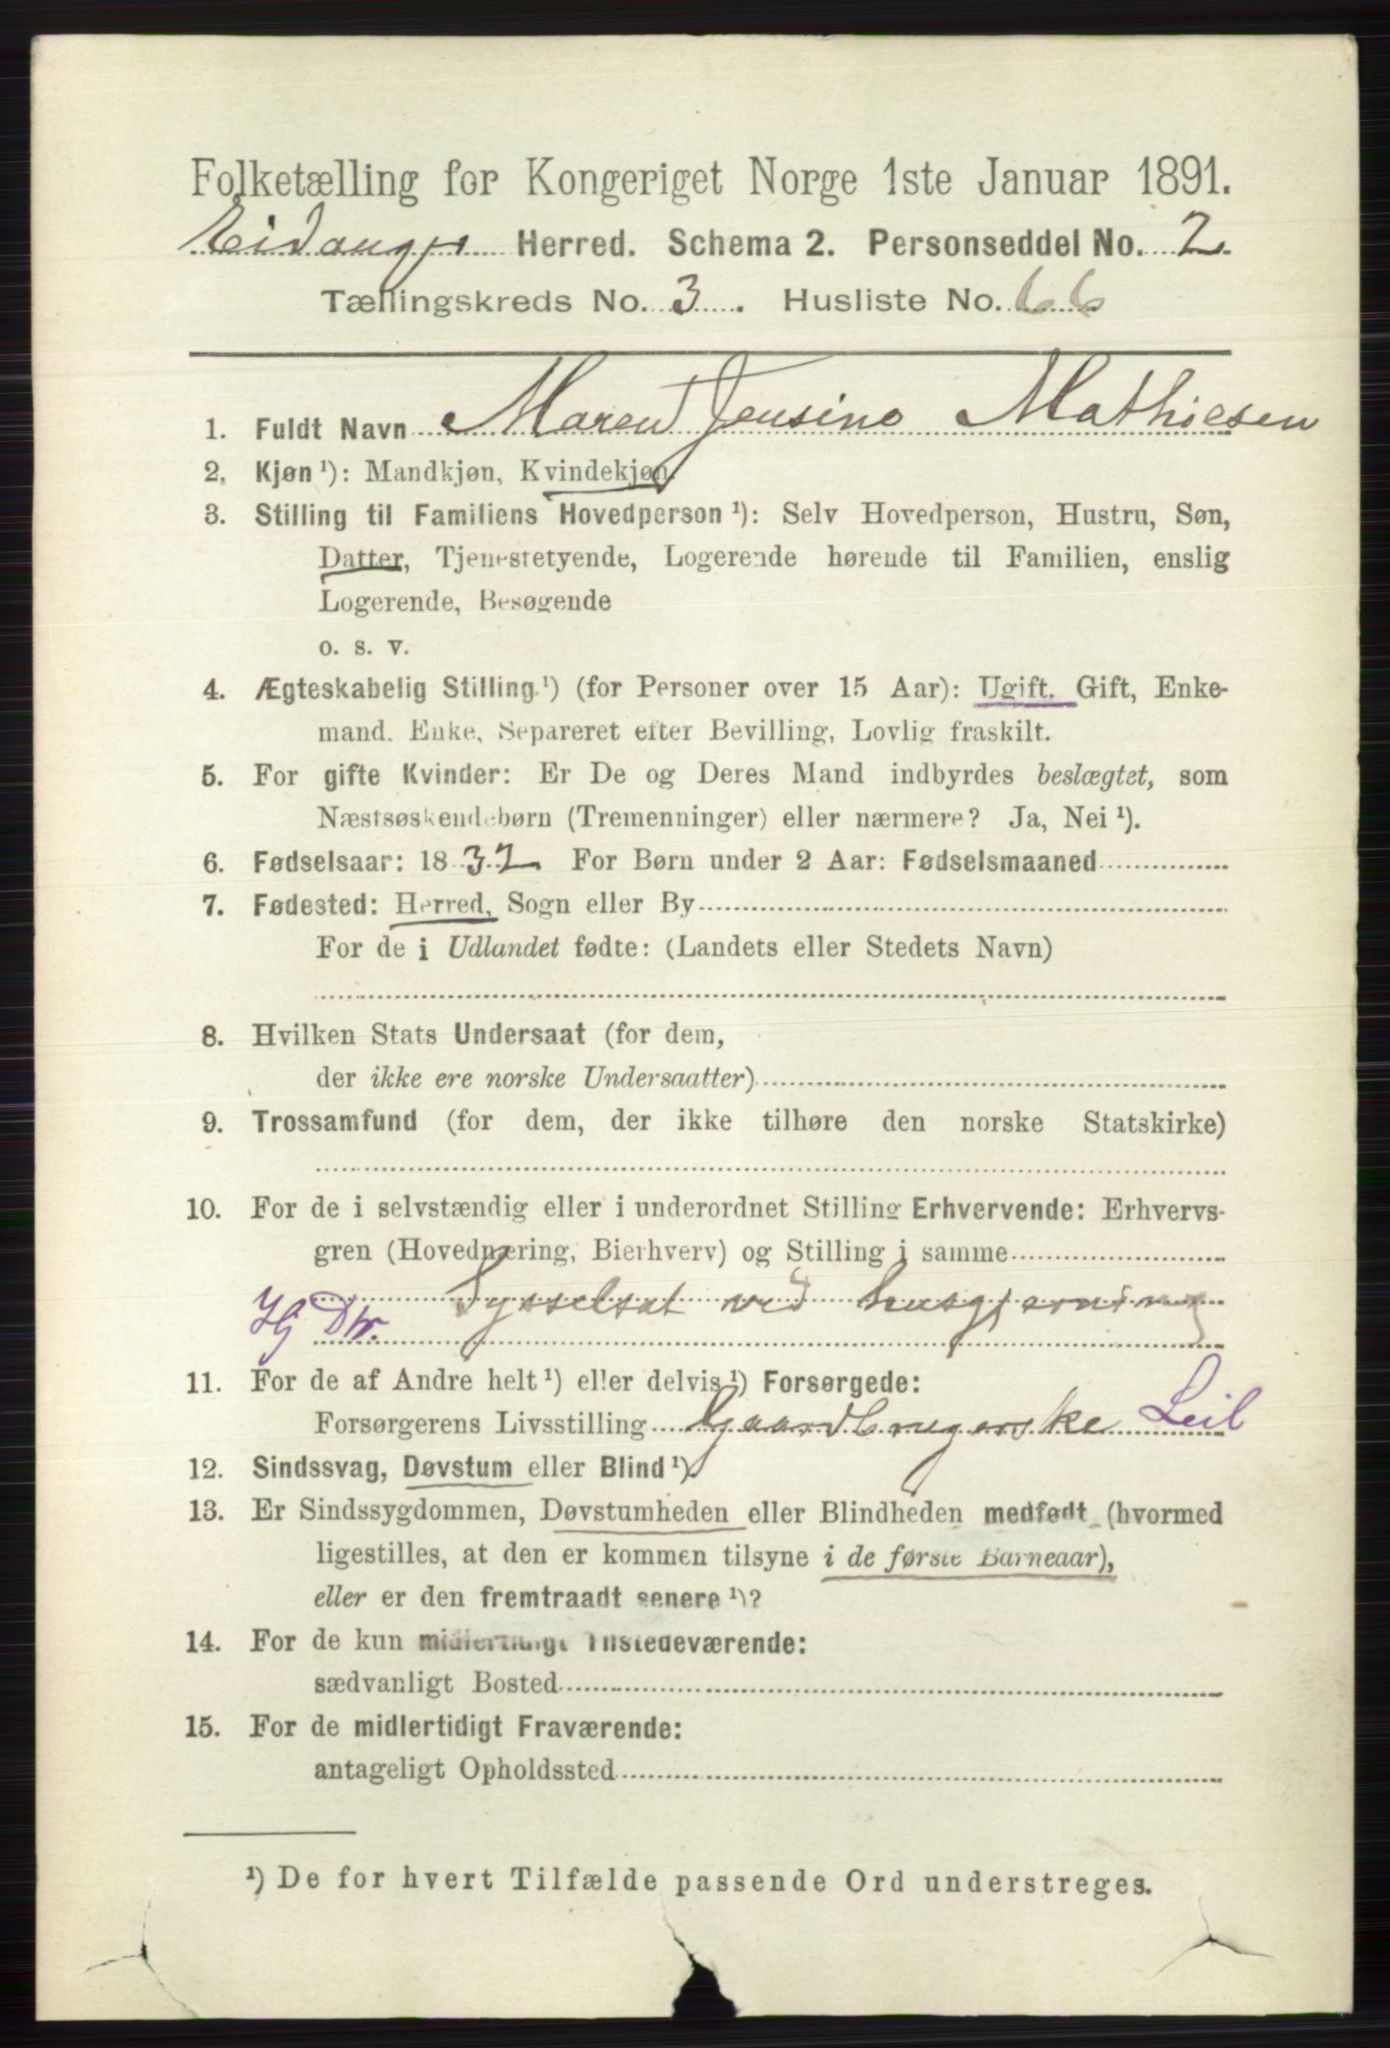 Folketælling for Kongeriget Norge 1ste Januar 1891.
Eidanger Herred. Schema 2. Personseddel No. 2
Tællingskreds No. 3. Husliste No. 66
1. Fuldt Navn Maren Jensine Mathiesen
2. Kjøn ¹): Mandkjøn, Kvindekjøn.
3. Stilling til Familiens Hovedperson ¹): Selv Hovedperson, Hustru, Søn,
Datter, Tjenestetyende, Logerende hørende til Familien, enslig
Logerende, Besøgende
o. s. v.
4. Ægteskabelig Stilling ¹) (for Personer over 15 Aar): Ugift. Gift, Enke-
mand. Enke, Separeret efter Bevilling, Lovlig fraskilt.
5. For gifte Kvinder: Er De og Deres Mand indbyrdes beslægtet, som
Næstsøskendebørn (Tremenninger) eller nærmere? Ja, Nei ¹).
6. Fødselsaar: 1832 For Børn under 2 Aar: Fødselsmaaned
7. Fødested: Herred, Sogn eller By
For de i Udlandet fødte: (Landets eller Stedets Navn)
8. Hvilken Stats Undersaat (for dem,
der ikke ere norske Undersaatter)
9. Trossamfund (for dem, der ikke tilhøre den norske Statskirke)
10. For de i selvstændig eller i underordnet Stilling Erhvervende: Erhvervs-
gren (Hovednæring, Bierhverv) og Stilling i samme
Sysselsat ved husgjerning
Hj Dtr.
11. For de af Andre helt ¹) eller delvis ¹) Forsørgede:
Forsørgerens Livsstilling Gaardbrugerske Leil
12. Sindssvag, Døvstum eller Blind ¹).
13. Er Sindssygdommen, Døvstumheden eller Blindheden medfødt (hvormed
ligestilles, at den er kommen tilsyne i de første Barneaar),
eller er den fremtraadt senere ¹)?
14. For de kun midlertidigt Tilstedeværende:
sædvanligt Bosted
15. For de midlertidigt Fraværende:
antageligt Opholdssted
¹) De for hvert Tilfælde passende Ord understreges.